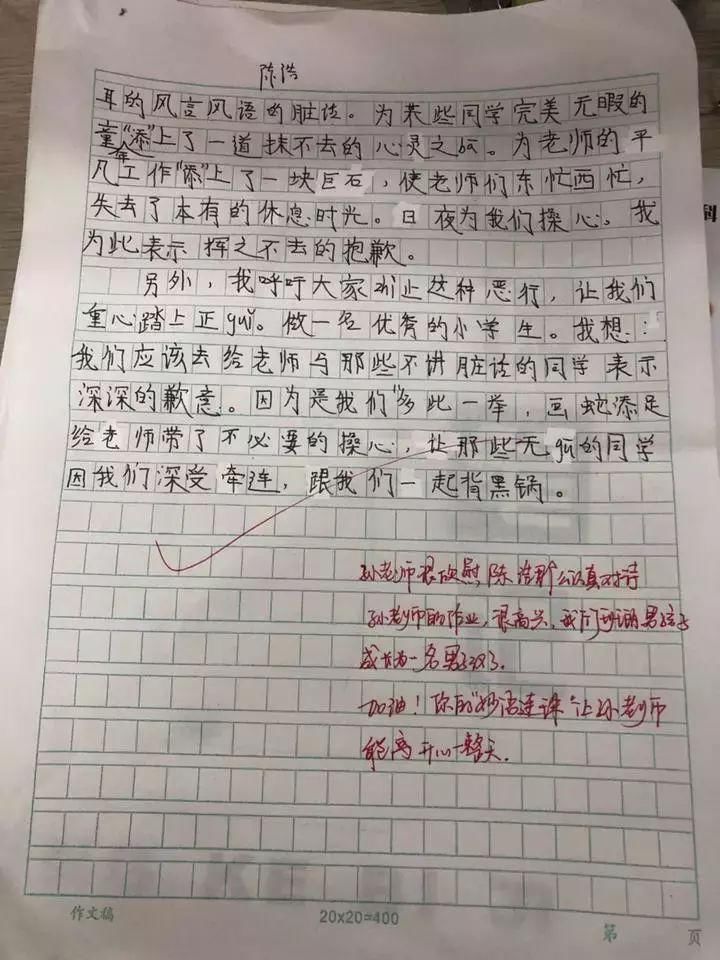 陈浩
耳的风言风语的脏话。为某些同学完美无暇的
童年"添"上了一道抹不去的心灵之ba。为老师的平
凡工作"添"上了一块巨石，使老师们东忙西忙，
失去了本有的休息时光。日夜为我们操心。我
为此表示挥之不去的抱歉。
另外，我呼吁大家zhi止这种恶行，让我们
重心踏上正gui。做一名优秀的小学生。我想：
我们应该去给老师与那些不讲脏话的同学表示
深深的歉意。因为是我们"多此一举，画蛇添足
给老师带了不必要的操心，让那些无gu的同学
因我们深受牵连，跟我们一起背黑锅。
孙老师很欣慰，陈浩那么认真对待
孙老师的作业，很高兴，我们班的男孩子
成长为一名男子汉了。
加油！你的"妙语连珠"让孙老师
能高开心一整天.
作文稿
20x20=400
第
页